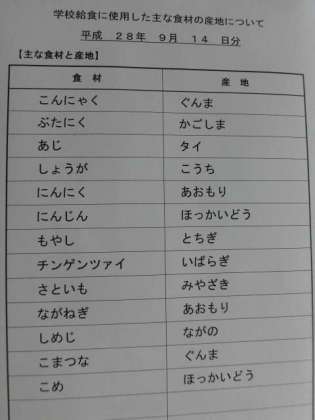 学校給食に使用した主な食材の産地について
平成 28年 9月 14 日分
【主な食材と産地】
食 材 産 地
こんにゃく ぐんま
ぶたにく かごしま
あじ タイ
しょうが こうち
にんにく あおもり
にんじん ほっかいどう
もやし とちぎ
チンゲンツァイ いばらぎ
さといも みやざき
ながねぎ あおもり
しめじ ながの
こまつな ぐんま
こめ ほっかいどう